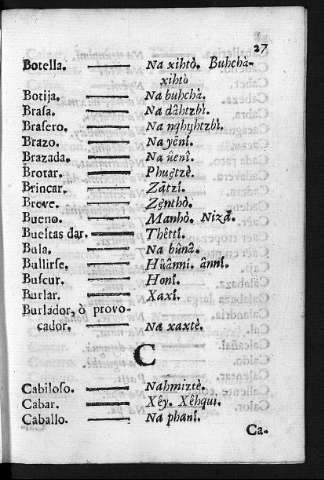 27
Botella. Na xihtò. Buhchà.
xihtò
Botija. Na buhchà.
Brasa. Na dâhtzbì.
Brasero. Na nqhyhtzbì.
Brazo. Na yènì.
Brazada. Na uenì.
Brotar. Phuętzè.
Brincar. Zātzì.
Breve. Zęnthò.
Bueno. Manhò. Nizā.
Bueltas dar. Thêttì.
Bula. Na bûnâ.
Bullirse. Hüànni. ânnì.
Buscur. Honì.
Burlar. Xaxì.
Burlador, ò provo-
cador. Na xaxtè.
C
Cabiloso. Nahmiztè.
Cabar. Xêy. Xêhqui.
Caballo. Na phanì.
Ca.